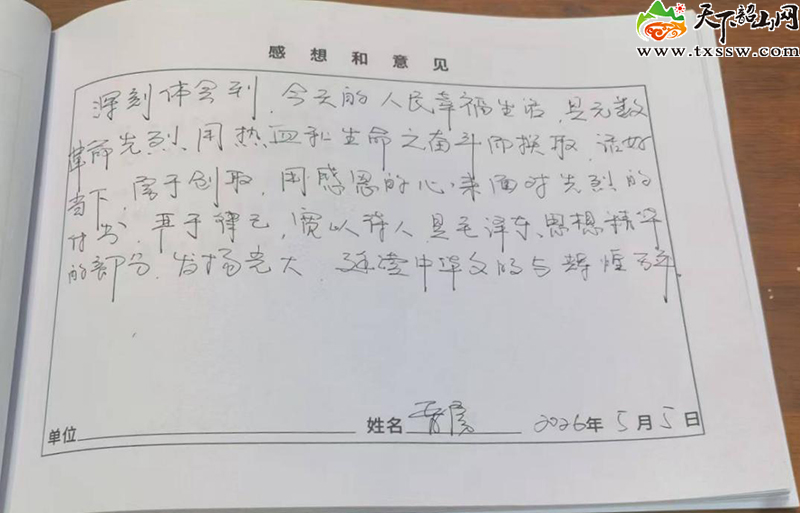 天下韶山网
www.txssw.com
感想和意见
深刻体会到,今天的人民幸福生活,是无数
革命先烈、用热血和生命之奋斗而换取,活好
当下,勇于创取,用感恩的心,来面对先烈的
付出,严于律己,宽以待人,是毛泽东思想精华
的部分,发扬光大,延续中华文明与辉煌
单位
姓名
2026年5月5日